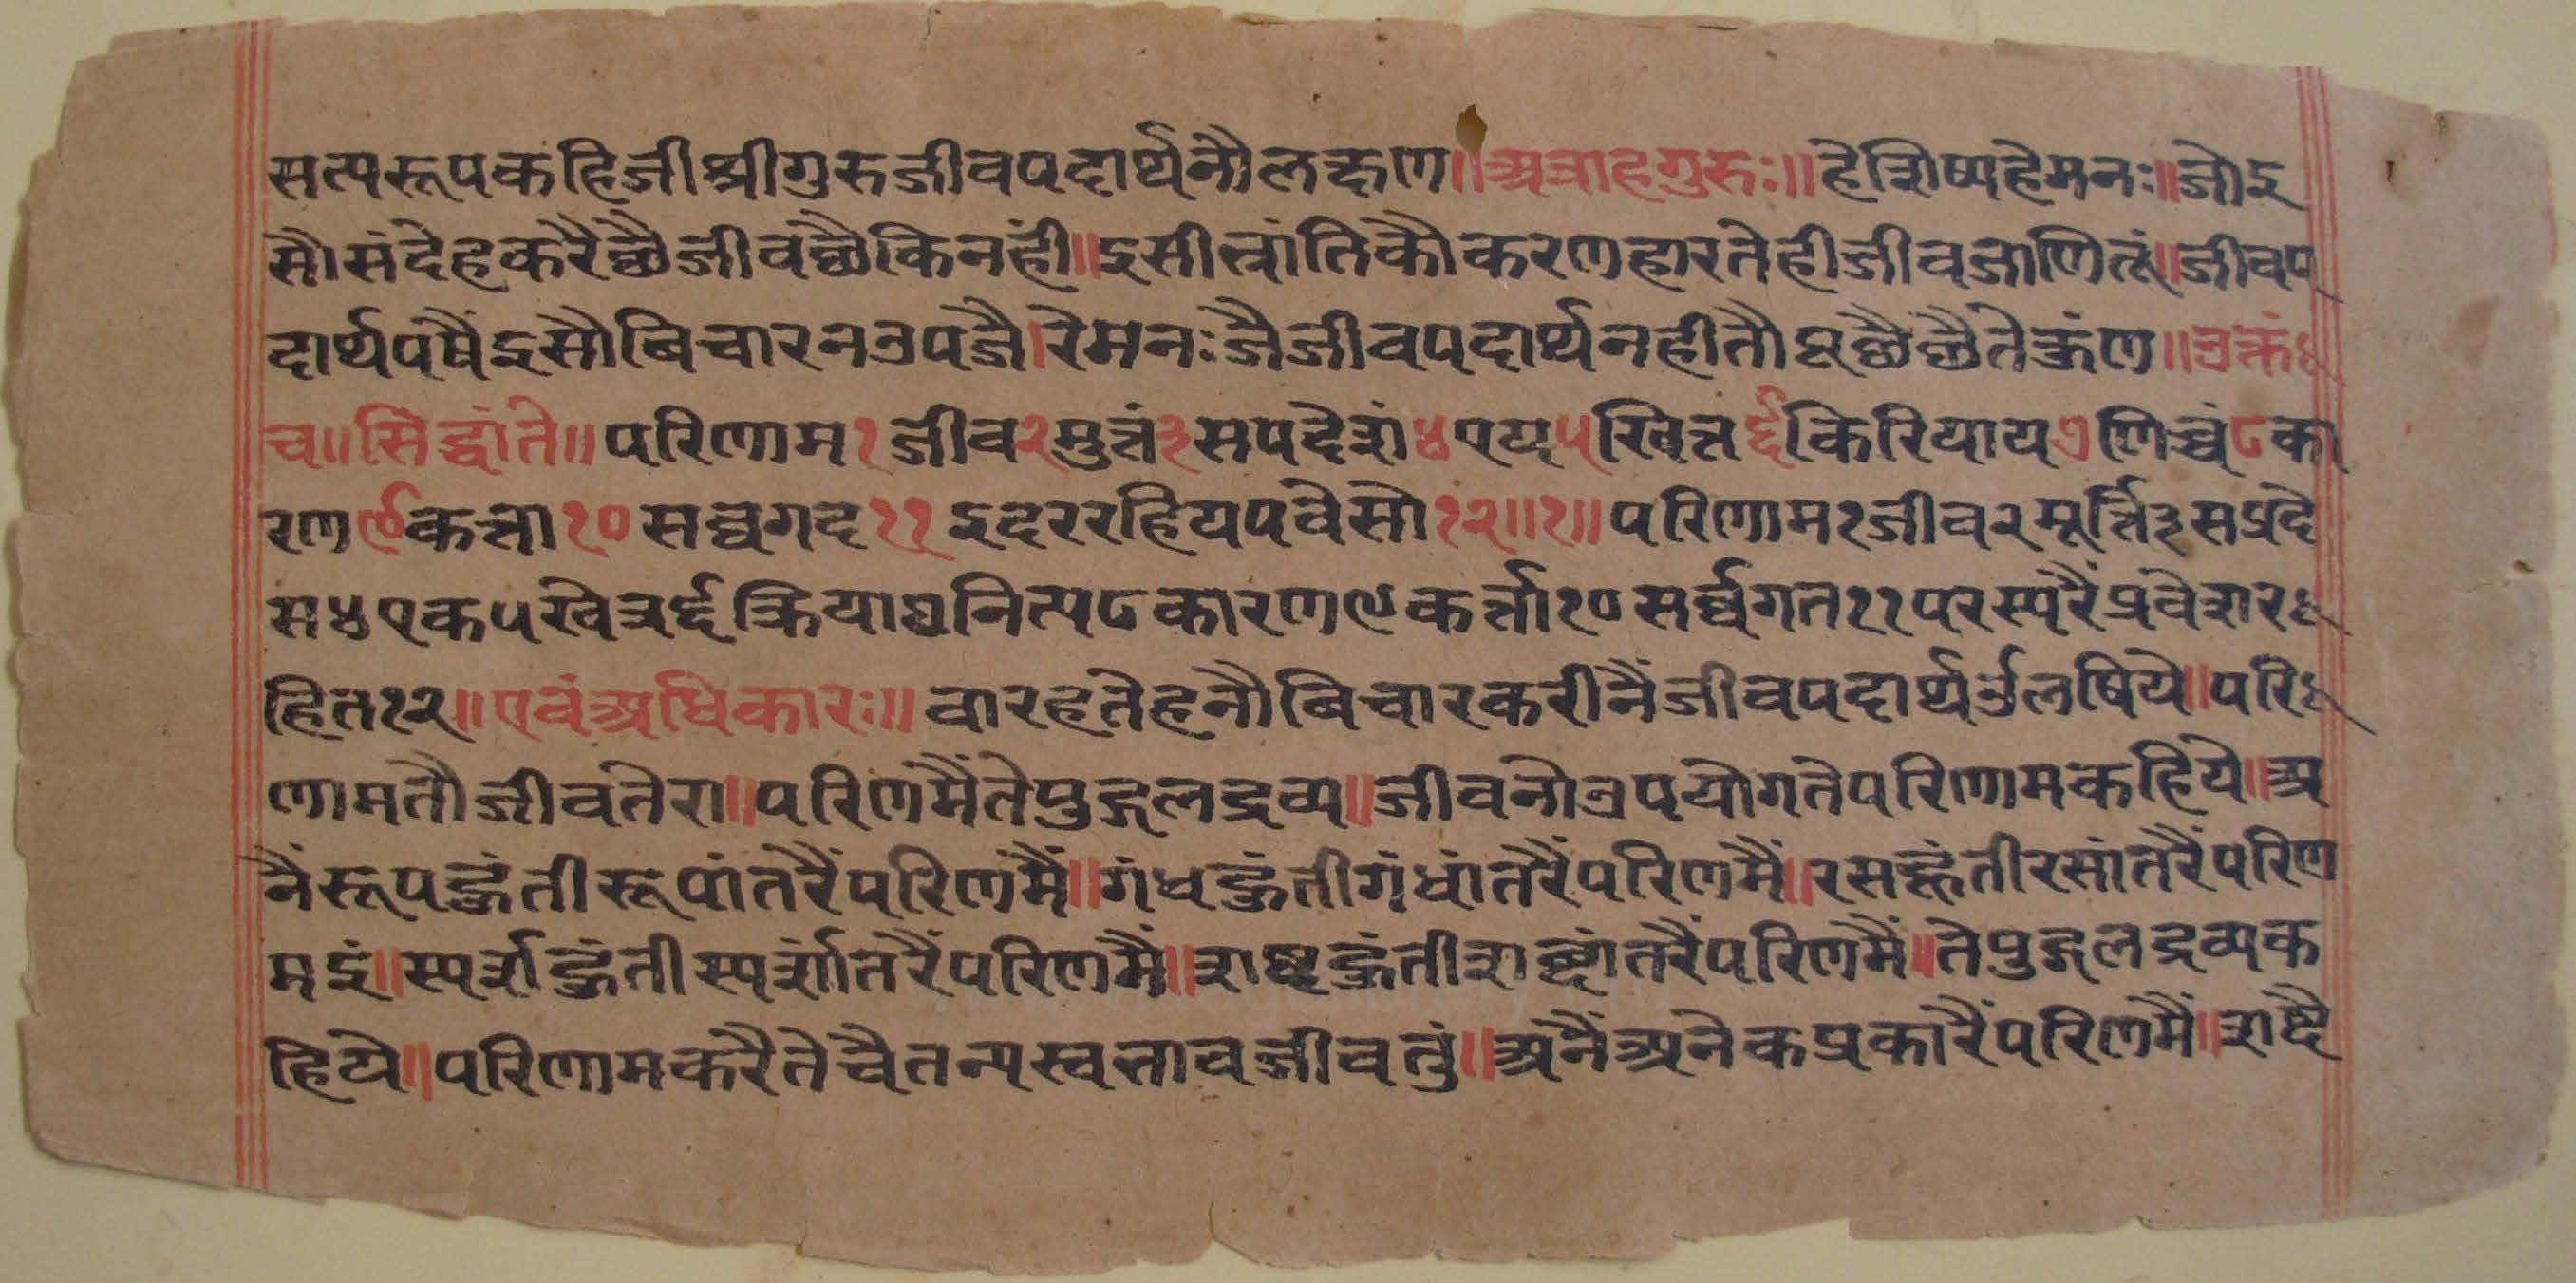 सत्यरूपकहिजीश्रीगुरुजीवपदार्थनौलक्षण॥अत्राहगुरुः॥हेशिष्यहेमनः॥जोइ
सौसंदेहकरैछैजीवछैकिनहीं॥इसीभ्रांतिकौकरणहारतेहीजीवजाणितूं॥जीवप
दार्थपषैंइसौबिचारनउपजै।रेमनःजैजीवपदार्थनहीतौपूछैछैतेकुंण॥उक्तं
च॥सिद्धांते॥परिणाम१जीव२मुत्तं३सपदेशं४एय५खित्त६किरियाय७णिच्चं८का
रण९कत्ता१०सव्वगद११इदररहियपवेसो१२॥१॥परिणाम१जीव२मूर्त्ति३सप्रदे
स४एक५खेत्र६क्रिया७नित्य८कारण९कर्त्ता१०सर्व्वगत११परस्परैंप्रवेशर
हित१२॥एवंअधिकारः॥बारहतेहनौबिचारकरीनैंजीवपदार्थउलषिये॥परि
णामतौजीवतेरा॥परिणमैंतेपुद्गलद्रव्य॥जीवनोउपयोगतेपरिणामकहिये॥अ
नैंरूपहुंतीरूपांतरैंपरिणंमैं॥गंधहुंतीगंधांतरैंपरिणमैं॥रसहुंतीरसांतरैंपरिण
मइं॥स्पर्शहुंतीस्पर्शांतरैंपरिणमैं॥शब्दहुंतीशब्दांतरैंपरिणमैं॥तेपुद्गलद्रव्यक
हिये॥परिणामकरैतेचैतन्यस्वभावजीवतुं॥अनैंअनेकप्रकारैंपरिणमैं॥शब्दै